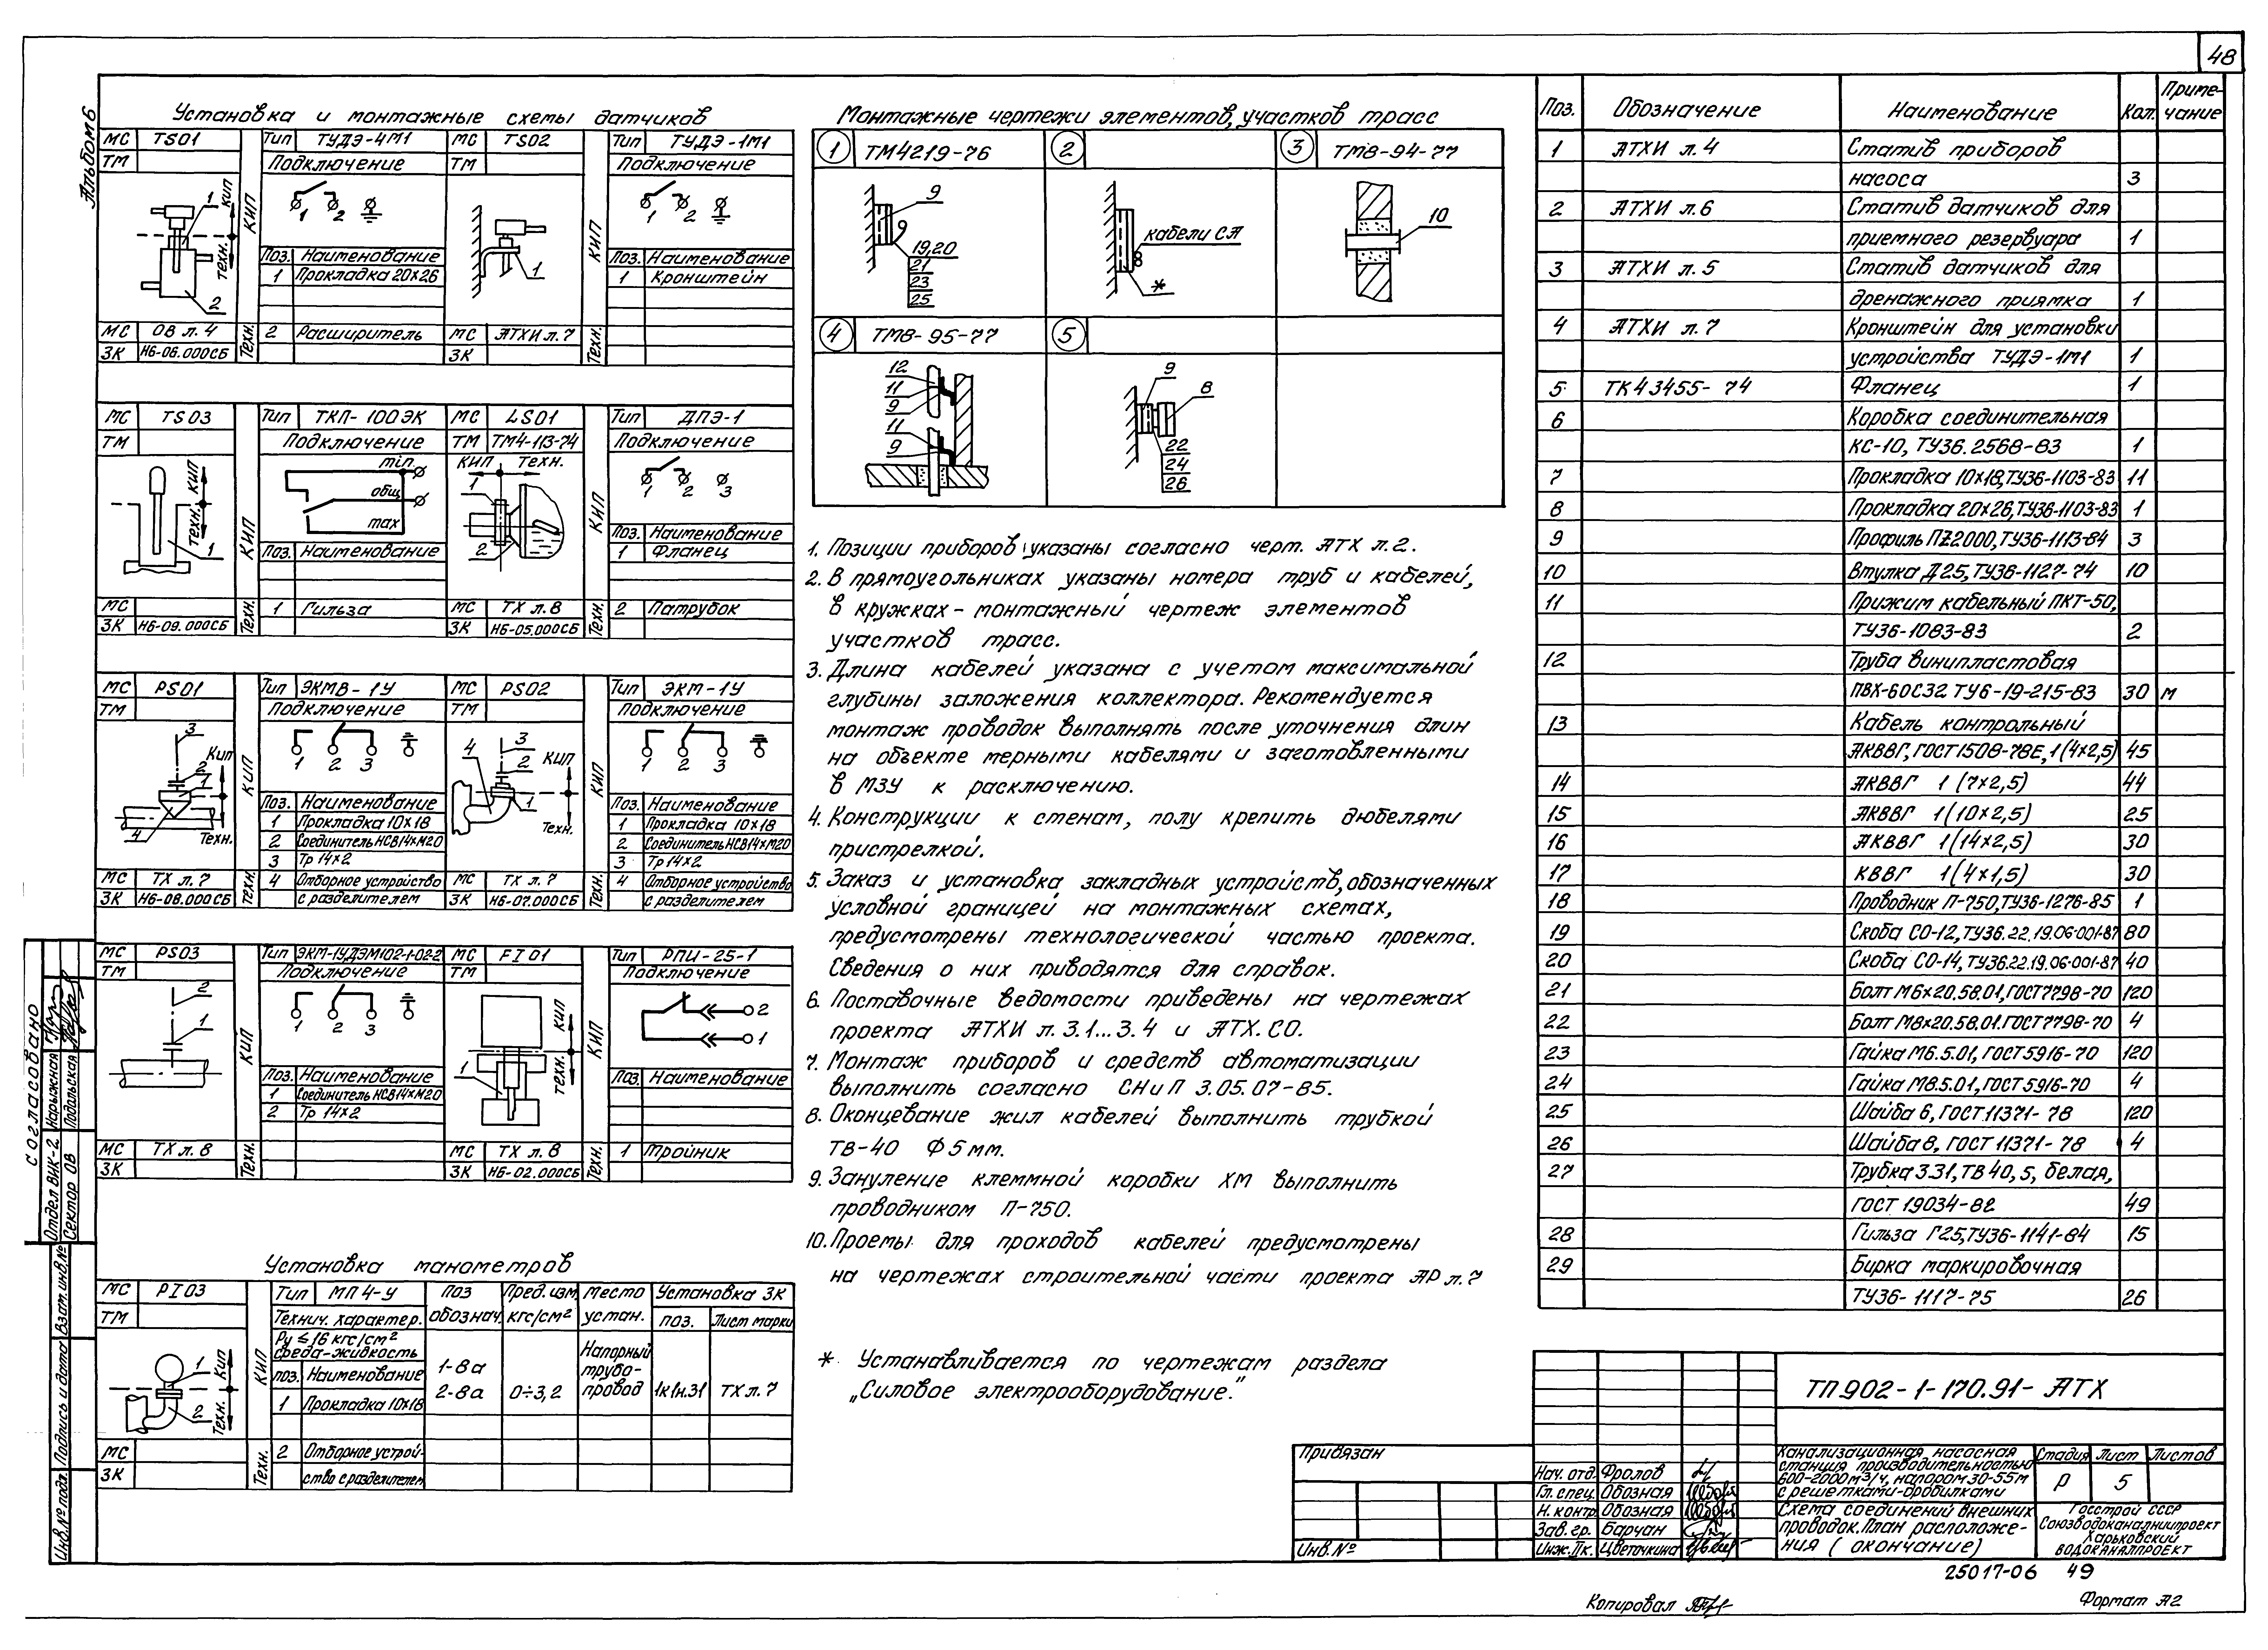 48
Альбом 6
Установка и монтажные схемы датчиков
МС TS01 Тип ТУДЭ-4М1 МС TS02 Тип ТУДЭ-1М1
ТМ Подключение ТМ Подключение
1 КИП Техн. 2
1 2
1
1 2
КИП
Поз. Наименование Поз. Наименование
1 Прокладка 20×26 1 Кронштейн
МС ОВ л. 4 Техн. 2 Расширитель МС АТХИ л. 7 Техн.
ЗК Н6-06.000СБ ЗК
МС TS03 Тип ТКП-100ЭК МС LS01 Тип ДПЭ-1
ТМ Подключение ТМ ТМ4-113-74 Подключение
КИП Техн. 1
min. общ. max
КИП Техн. 1 2
1 2 3
КИП
Поз. Наименование Поз. Наименование
1 Фланец
МС Техн. 1 Гильза МС ТХ л. 8 Техн. 2 Патрубок
ЗК Н6-09.000СБ ЗК Н6-05.000СБ
МС PS01 Тип ЭКМВ-1У МС PS02 Тип ЭКМ-1У
ТМ Подключение ТМ Подключение
3 КИП 2 1 4 Техн.
1 2 3
4 3 2 КИП 1 Техн.
1 2 3
КИП
Поз. Наименование Поз. Наименование
1 Прокладка 10×18 1 Прокладка 10×18
2 Соединитель НСВ14×М20 2 Соединитель НСВ14×М20
3 Тр 14×2 3 Тр 14×2
МС ТХ л. 7 Техн. 4 Отборное устройство МС ТХ л. 7 Техн. 4 Отборное устройство
ЗК Н6-08.000СБ с разделителем ЗК Н6-07.000СБ с разделителем
МС PS03 Тип ЭКМ-1УДЭМ102-1-02-2 МС FI01 Тип РПИ-25-1
ТМ Подключение ТМ Подключение
2 1
1 2 3
КИП Техн. 1
2
1
КИП
Поз. Наименование Поз. Наименование
1 Соединитель НСВ14×М20
2 Тр 14×2
МС ТХ л. 8 Техн. МС ТХ л. 8 Техн. 1 Тройник
ЗК ЗК Н6-02.000СБ
Установка манометров
МС PI03 Тип МП4-У Поз Пред. изм. Место Установка ЗК
ТМ Технич. характер. обознач. кгс/см² устан. поз. Лист марки
Ру ≤ 16 кгс/см²
среда-жидкость
поз. Наименование
1 Прокладка 10×18
1-8а
2-8а 0÷3,2 Напорный трубо-провод 1к1н.31 ТХ л. 7
1 КИП 2 Техн.
КИП
МС Техн. 2 Отборное устрой-
ЗК ство с разделителем
Монтажные чертежи элементов, участков трасс
1 ТМ4219-76 2 3 ТМ8-94-77
9
19,20
21
23
25
кабели СА
*
10
4 ТМ8-95-77 5
12
11
9
11
9
9 8
22
24
26
1. Позиции приборов указаны согласно черт. АТХ л. 2.
2. В прямоугольниках указаны номера труб и кабелей,
в кружках - монтажный чертеж элементов
участков трасс.
3. Длина кабелей указана с учетом максимальной
глубины заложения коллектора. Рекомендуется
монтаж проводок выполнять после уточнения длин
на объекте мерными кабелями и заготовленными
в МЗУ к расключению.
4. Конструкции к стенам, полу крепить дюбелями
пристрелкой.
5. Заказ и установка закладных устройств, обозначенных
условной границей на монтажных схемах,
предусмотрены технологической частью проекта.
Сведения о них приводятся для справок.
6. Поставочные ведомости приведены на чертежах
проекта АТХИ л. 3.1...3.4 и АТХ.СО.
7. Монтаж приборов и средств автоматизации
выполнить согласно СНиП 3.05.07-85.
8. Оконцевание жил кабелей выполнить трубкой
ТВ-40 Ф5мм.
9. Зануление клеммной коробки ХМ выполнить
проводником П-750.
10. Проемы для проходов кабелей предусмотрены
на чертежах строительной части проекта АР л. 7
* Устанавливается по чертежам раздела
„Силовое электрооборудование."
Поз. Обозначение Наименование Кол. Приме-чание
1 АТХИ л. 4 Статив приборов
насоса 3
2 АТХИ л. 6 Статив датчиков для
приемного резервуара 1
3 АТХИ л. 5 Статив датчиков для
дренажного приямка 1
4 АТХИ л. 7 Кронштейн для установки
устройства ТУДЭ-1М1 1
5 ТК43455-74 Фланец 1
6 Коробка соединительная
КС-10, ТУ36.2568-83 1
7 Прокладка 10×18, ТУ36-1103-83 11
8 Прокладка 20×26, ТУ36-1103-83 1
9 Профиль ПZ2000, ТУ36-1113-84 3
10 Втулка Д25, ТУ36-1127-74 10
11 Прижим кабельный ПКТ-50,
ТУ36-1083-83 2
12 Труба винипластовая
ПВХ-60С32 ТУ6-19-215-83 30 м
13 Кабель контрольный
АКВВГ, ГОСТ1508-78Е, 1(4×2,5) 45
14 АКВВГ 1 (7×2,5) 44
15 АКВВГ 1 (10×2,5) 25
16 АКВВГ 1 (14×2,5) 30
17 КВВГ 1 (4×1,5) 30
18 Проводник П-750, ТУ36-1276-85 1
19 Скоба СО-12, ТУ36.22.19.06-001-87 80
20 Скоба СО-14, ТУ36.22.19.06-001-87 40
21 Болт М6×20.58.01, ГОСТ7798-70 120
22 Болт М8×20.58.01. ГОСТ7798-70 4
23 Гайка М6.5.01, ГОСТ5916-70 120
24 Гайка М8.5.01, ГОСТ5916-70 4
25 Шайба 6, ГОСТ11371-78 120
26 Шайба 8, ГОСТ 11371-78 4
27 Трубка 3.31, ТВ 40, 5, белая,
ГОСТ 19034-82 49
28 Гильза Г25, ТУ36-1141-84 15
29 Бирка маркировочная
ТУ36-1117-75 26
ТП 902-1-170.91-АТХ
Привязан
Инв.№
Нач. отд. Фролов
Гл. спец. Обозная
Н. контр. Обозная
Зав. гр. Барчан
Инж. IIк. Цветочкина
Канализационная насосная
станция производительностью
600-2000 м³/ч, напором 30-55м
с решетками-дробилками
Стадия Лист Листов
Р 5
Схема соединений внешних
проводок. План расположе-
ния (окончание)
Госстрой СССР
Союзводоканалниипроект
Харьковский
ВОДОКАНАЛПРОЕКТ
25017-06 49
Копировал
Формат А2
Согласовано
Отдел ВИК-2 Нарыжная
Сектор ОВ Подольская
Инв.№ подл. Подпись и дата Взам. инв.№